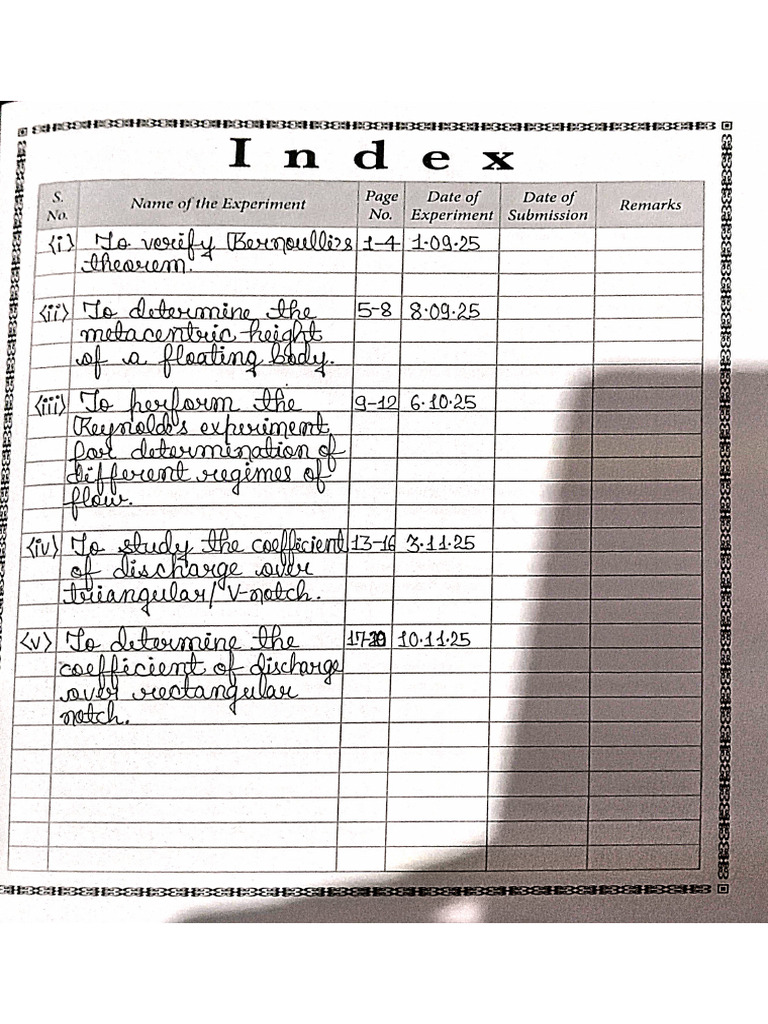 Index
S. No. Name of the Experiment Page No. Date of Experiment Date of Submission Remarks
<i> To verify Bernoulli's 1-4 1.09.25
theorem.
<ii> To determine the 5-8 8.09.25
metacentric height
of a floating body.
<iii> To perform the 9-12 6.10.25
Reynold's experiment
for determination of
different regimes of
flow.
<iv> To study the coefficient 13-16 3.11.25
of discharge over
triangular/V-notch.
<v> To determine the 17-20 10.11.25
coefficient of discharge
over rectangular
notch.